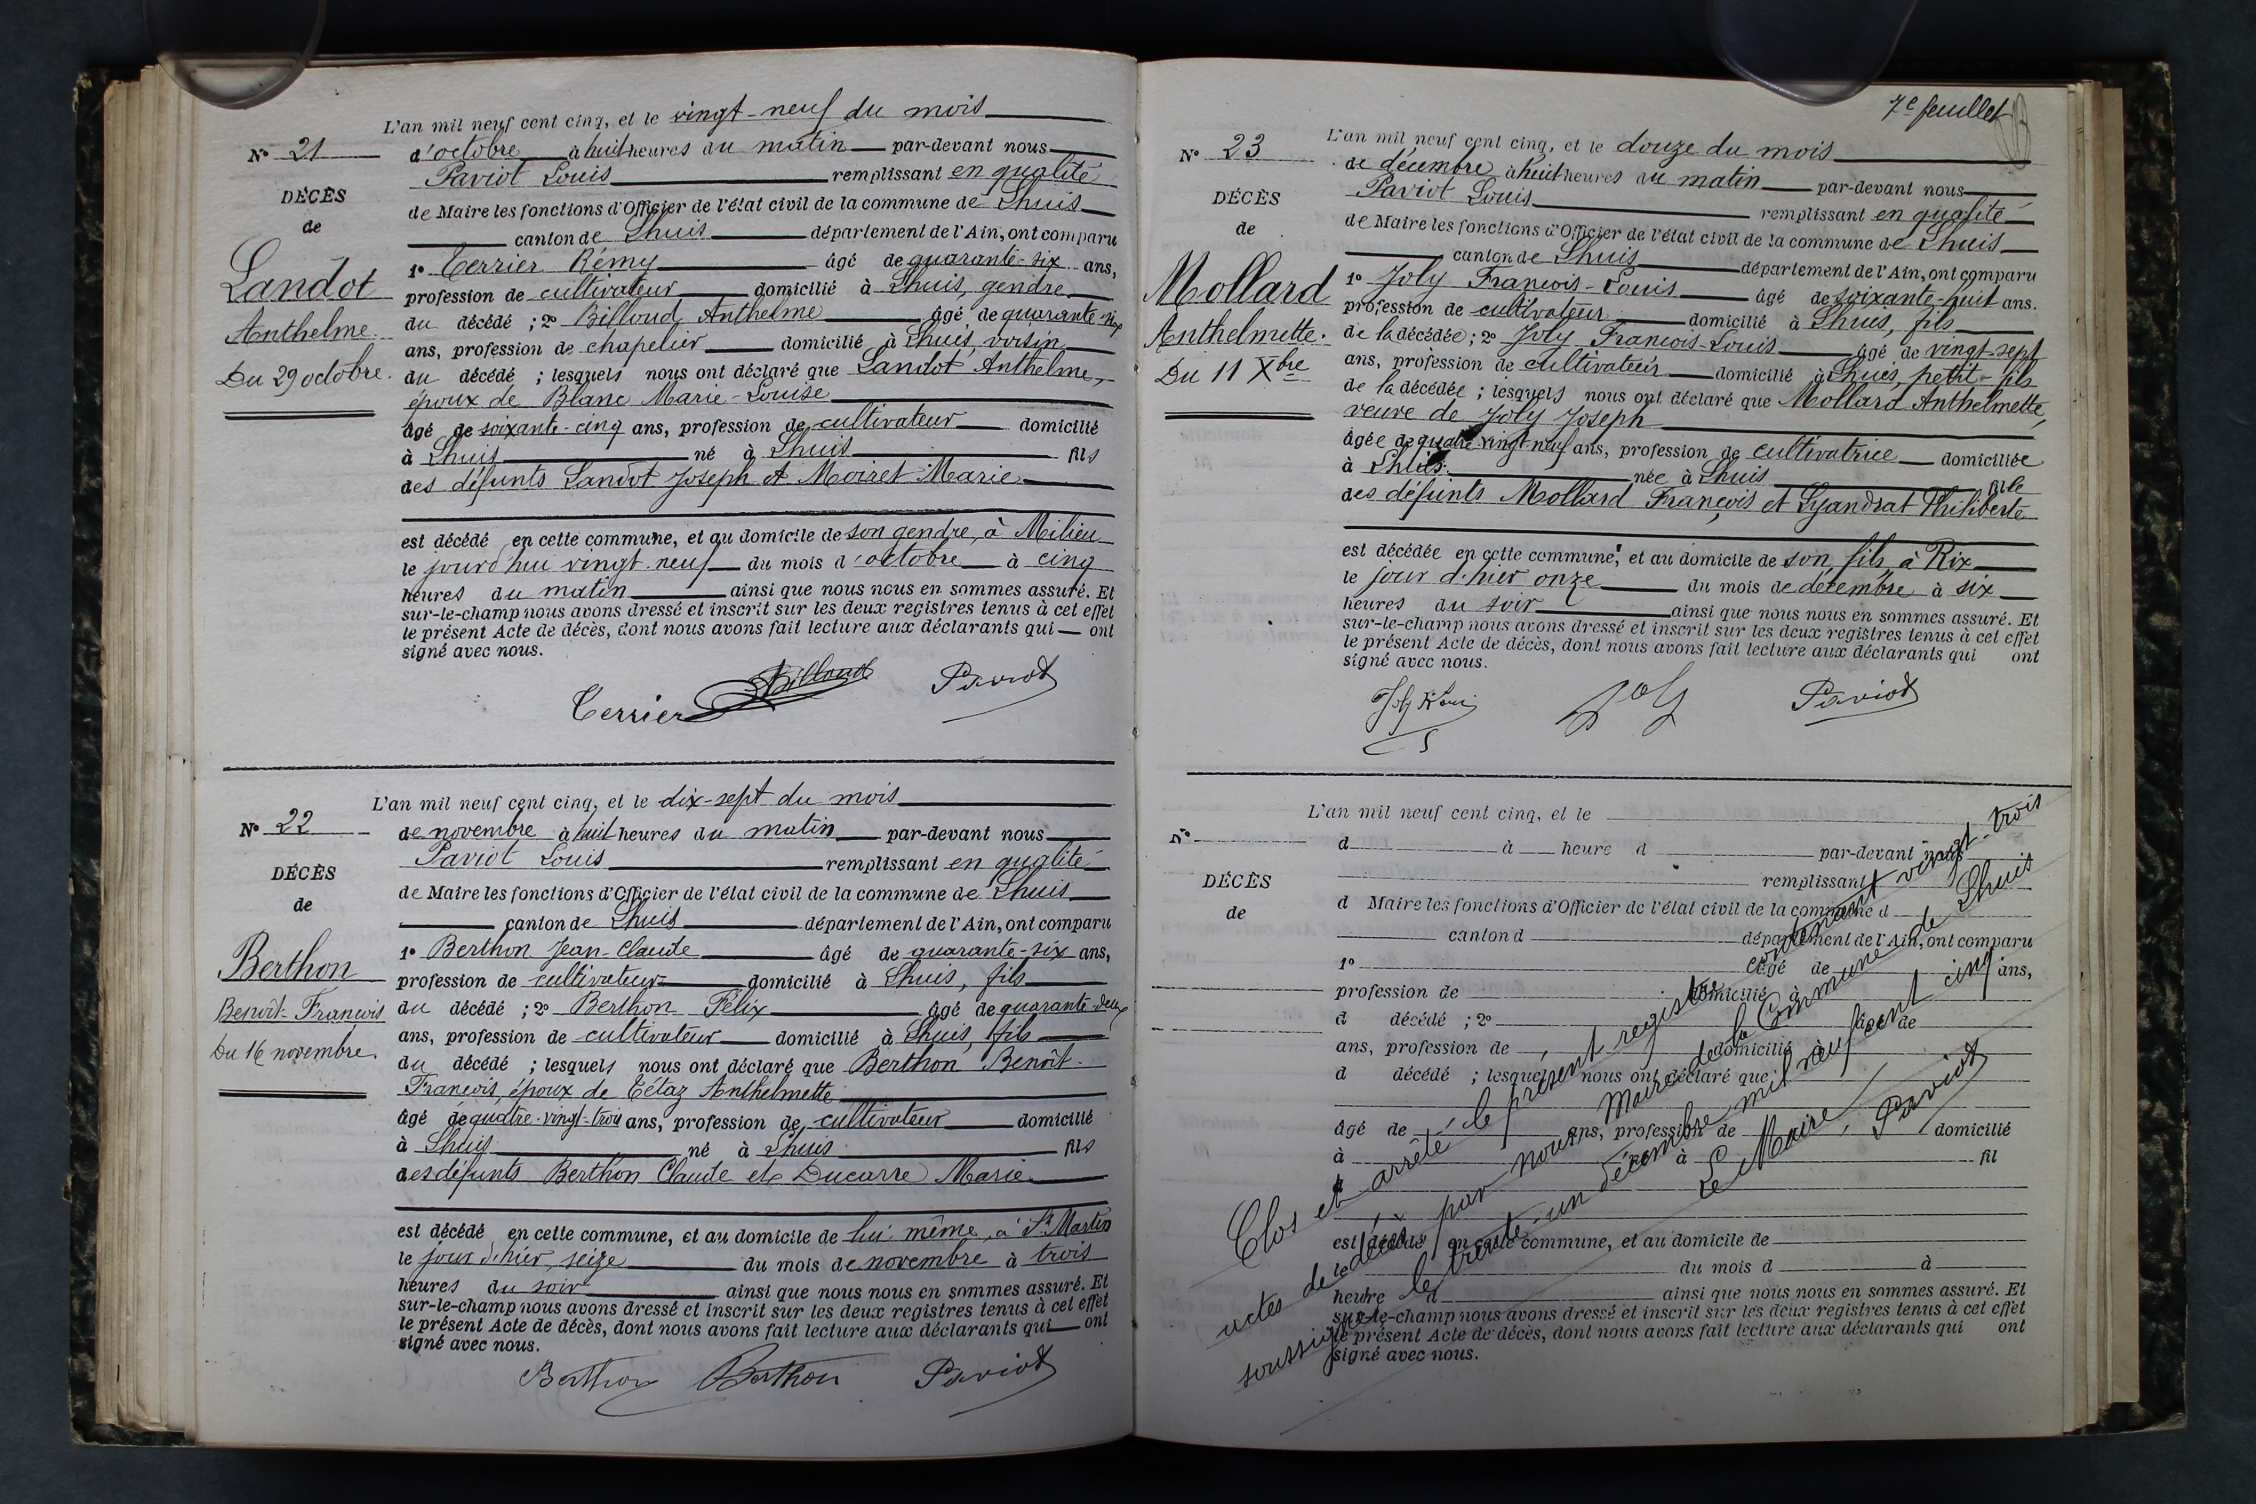 L'an mil neuf cent cinq, et le vingt-neuf du mois
N° 21
d'octobre à huit heures du matin par-devant nous
Paviot Louis remplissant en qualité
DÉCÈS
de Maire les fonctions d'Officier de l'état civil de la commune de Lhuis
de
canton de Lhuis département de l'Ain, ont comparu
1° Terrier Rémy âgé de quarante-six ans,
Landot
profession de cultivateur domicilié à Lhuis, gendre
Anthelme.
du décédé ; 2° Billoud Anthelme âgé de quarante-six
ans, profession de chapelier domicilié à Lhuis, voisin
Du 29 octobre.
du décédé ; lesquels nous ont déclaré que Landot Anthelme,
époux de Blanc Marie-Louise
âgé de soixante-cinq ans, profession de cultivateur domicilié
à Lhuis né à Lhuis fils
des défunts Landot Joseph et Moiret Marie
est décédé en cette commune, et au domicile de son gendre, à Milieu
le jourd'hui vingt-neuf du mois d'octobre à cinq
heures du matin ainsi que nous nous en sommes assuré. Et
sur-le-champ nous avons dressé et inscrit sur les deux registres tenus à cet effet
le présent Acte de décès, dont nous avons fait lecture aux déclarants qui ont
signé avec nous.
Terrier Billoud Paviot
L'an mil neuf cent cinq, et le dix-sept du mois
N° 22
de novembre à huit heures du matin par-devant nous
Paviot Louis remplissant en qualité
DÉCÈS
de Maire les fonctions d'Officier de l'état civil de la commune de Lhuis
de
canton de Lhuis département de l'Ain, ont comparu
1° Berthon Jean-Claude âgé de quarante-six ans,
Berthon
profession de cultivateur domicilié à Lhuis, fils
Benoît-François
du décédé ; 2° Berthon Félix âgé de quarante-deux
ans, profession de cultivateur domicilié à Lhuis, fils
Du 16 novembre.
du décédé ; lesquels nous ont déclaré que Berthon Benoît-
François, époux de Tétaz Anthelmette
âgé de quatre-vingt-trois ans, profession de cultivateur domicilié
à Lhuis né à Lhuis fils
des défunts Berthon Claude et Ducarre Marie
est décédé en cette commune, et au domicile de lui-même, à St Martin
le jour d'hier, seize du mois de novembre à trois
heures du soir ainsi que nous nous en sommes assuré. Et
sur-le-champ nous avons dressé et inscrit sur les deux registres tenus à cet effet
le présent Acte de décès, dont nous avons fait lecture aux déclarants qui ont
signé avec nous.
Berthon Berthon Paviot
7e feuillet
L'an mil neuf cent cinq, et le douze du mois
N° 23
de décembre à huit heures du matin par-devant nous
Paviot Louis remplissant en qualité
DÉCÈS
de Maire les fonctions d'Officier de l'état civil de la commune de Lhuis
de
canton de Lhuis département de l'Ain, ont comparu
1° Joly François-Louis âgé de soixante-huit ans.
Mollard
profession de cultivateur domicilié à Lhuis, fils
Anthelmette.
de la décédée ; 2° Joly François-Louis âgé de vingt-sept
ans, profession de cultivateur domicilié à Lhuis, petit-fils
Du 11 Xbre
de la décédée ; lesquels nous ont déclaré que Mollard Anthelmette,
veuve de Joly Joseph
âgée de quatre-vingt-neuf ans, profession de cultivatrice domiciliée
à Lhuis née à Lhuis fille
des défunts Mollard François et Lyandrat Philiberte
est décédée en cette commune, et au domicile de son fils, à Rix
le jour d'hier onze du mois de décembre à six
heures du soir ainsi que nous nous en sommes assuré. Et
sur-le-champ nous avons dressé et inscrit sur les deux registres tenus à cet effet
le présent Acte de décès, dont nous avons fait lecture aux déclarants qui ont
signé avec nous.
Joly Joly Paviot
L'an mil neuf cent cinq, et le
N°
d à heure d par-devant nous
remplissant
DÉCÈS
d Maire les fonctions d'Officier de l'état civil de la commune d
de
canton d département de l'Ain, ont comparu
1° âgé de ans,
profession de domicilié à
d décédé ; 2° âgé de
ans, profession de domicilié à
d décédé ; lesquels nous ont déclaré que
âgé de ans, profession de domicilié
à né à fil
d
est décédé en cette commune, et au domicile de
le du mois d à
heure d ainsi que nous nous en sommes assuré. Et
sur-le-champ nous avons dressé et inscrit sur les deux registres tenus à cet effet
le présent Acte de décès, dont nous avons fait lecture aux déclarants qui ont
signé avec nous.
Clos et arrêté le présent registre contenant vingt-trois
actes de décès par nous Maire de la Commune de Lhuis
soussigné le trente-un décembre mil neuf cent cinq
Le Maire, Paviot